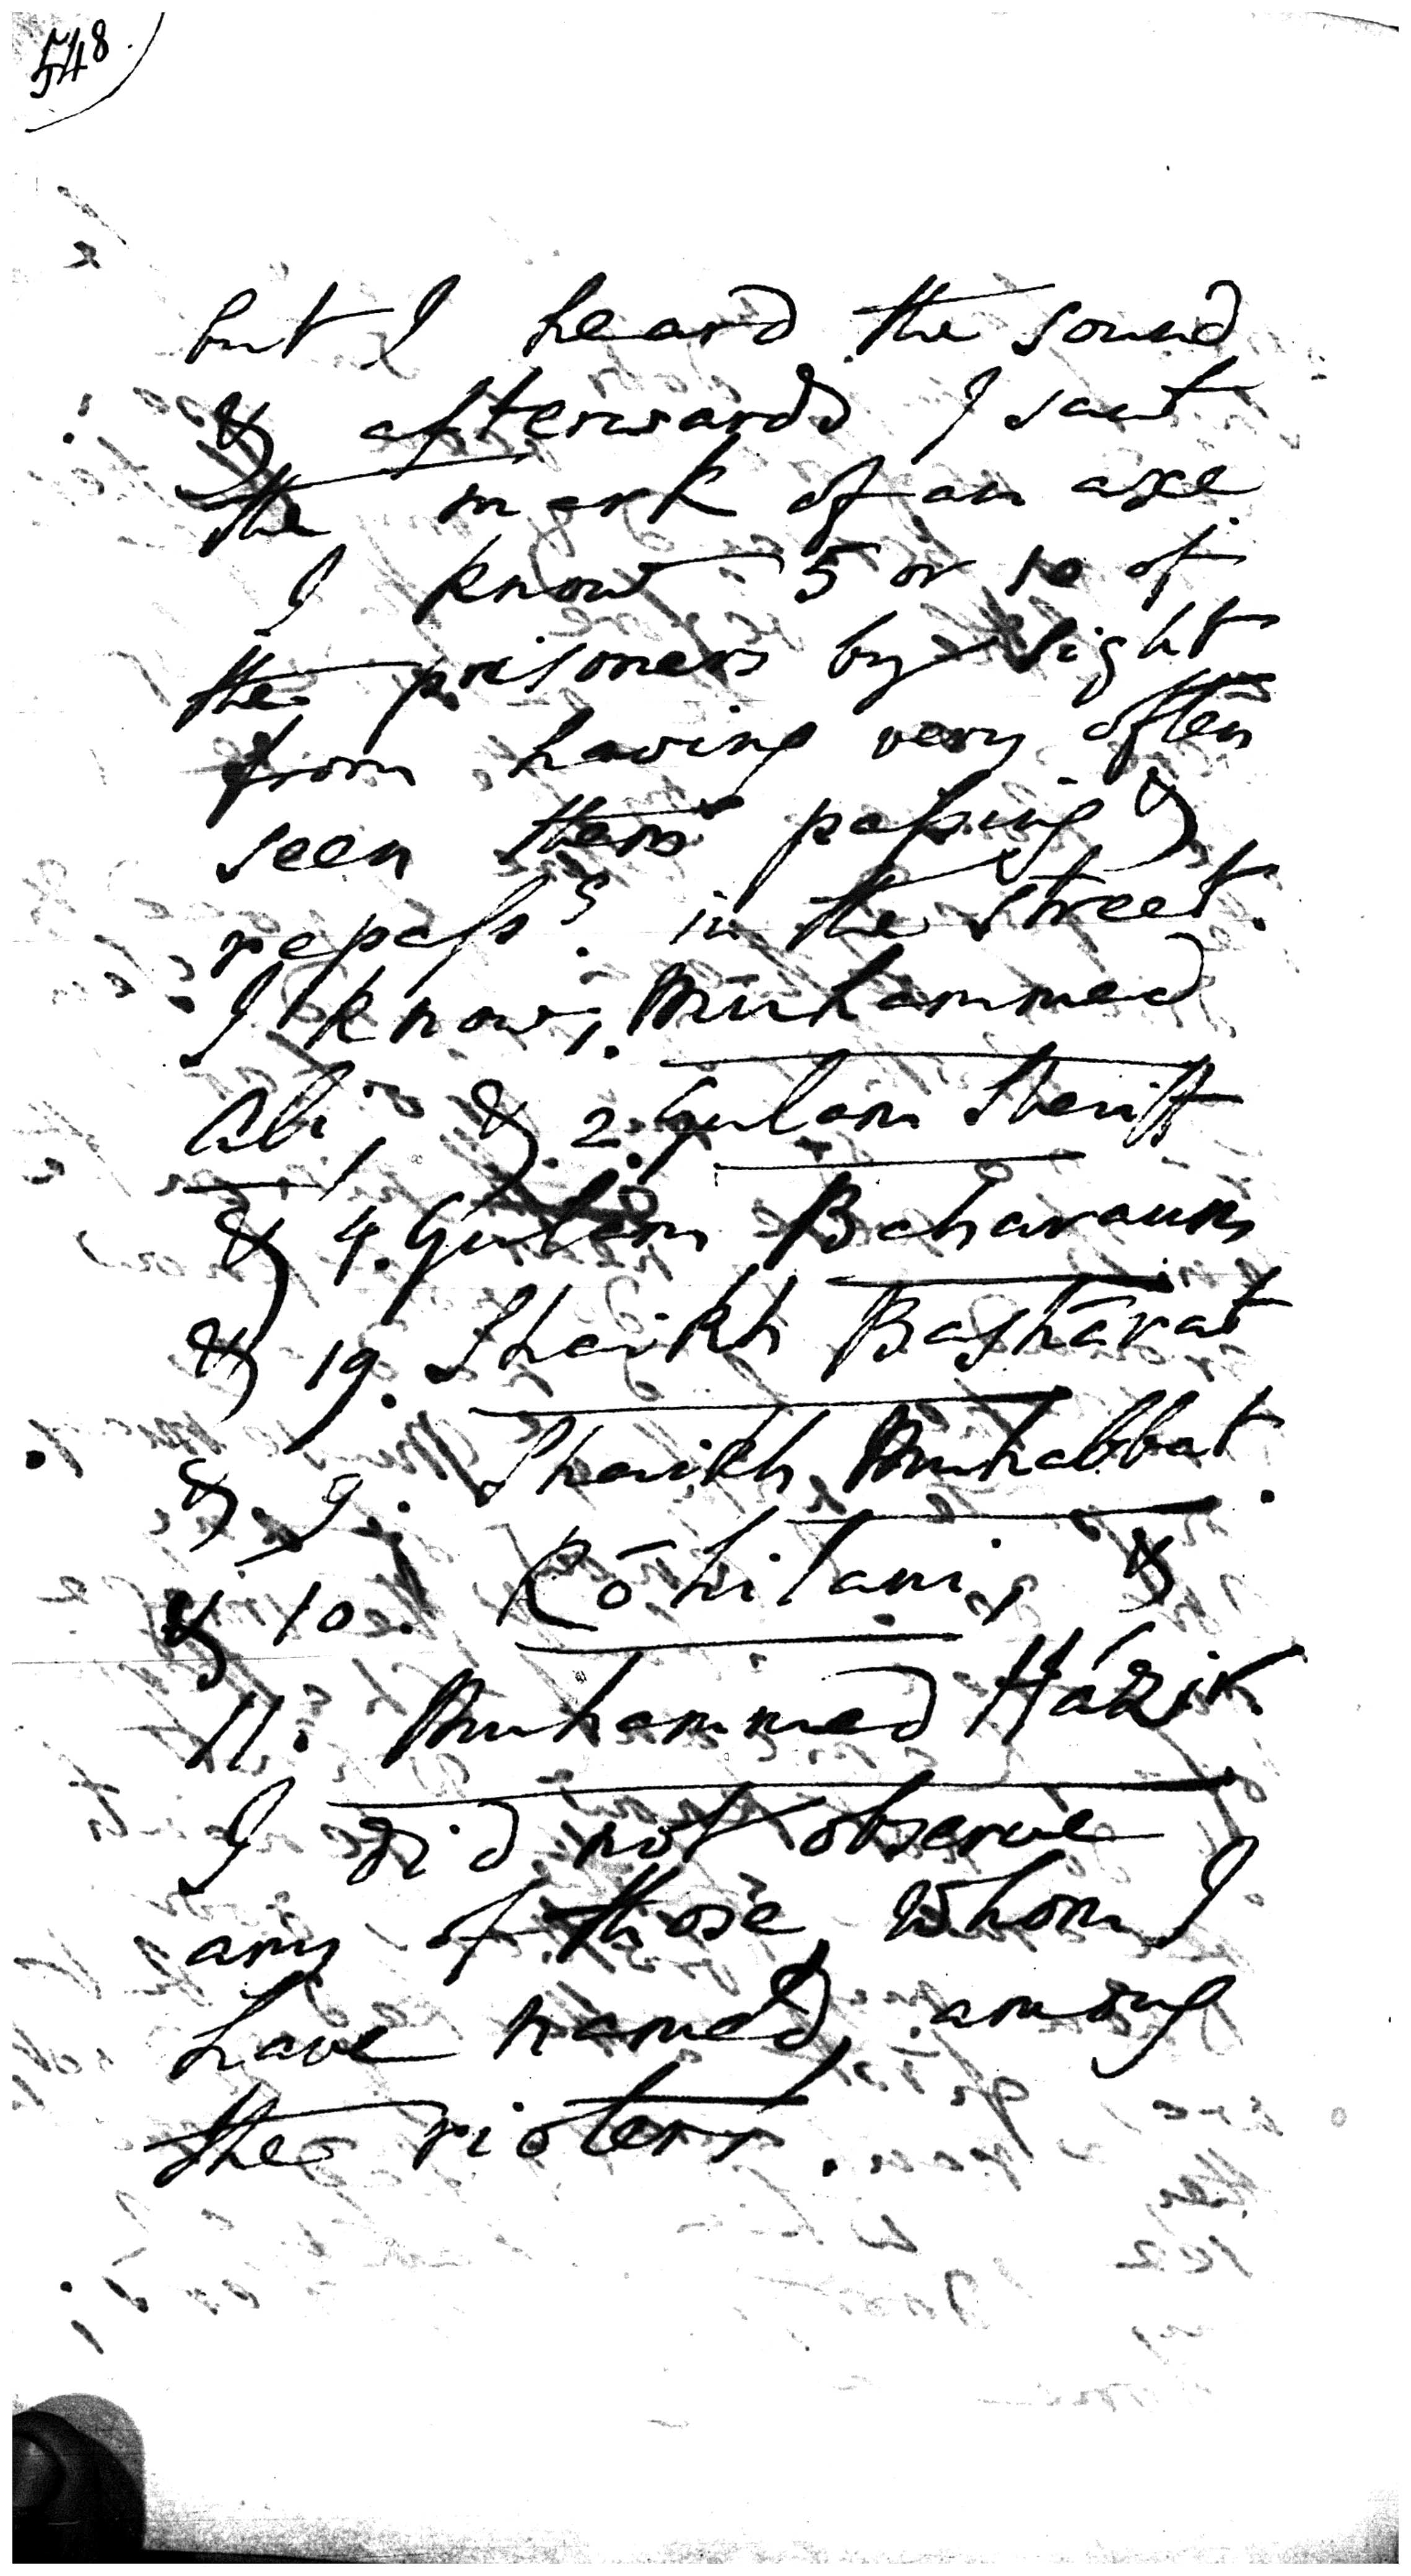 548
but I heard the sound
& afterwards I saw
the mark of an axe.
I know 5 or 10 of
the prisoners by sight
from having very often
seen them passing &
repassg. in the street.
I know, 1. Muhammed
Ali, & 2. Gulam Sheriff
& 4. Gulam Baharaum
& 19. Shaikh Bashārat
& 9. Shaikh Muhabbat.
& 10. Rōhilani, &
11. Muhammed Házir
I did not observe
any of those, whom I
have named, among
the rioters.